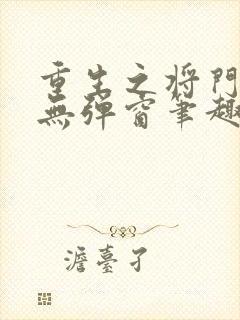 重生之将門
無彈窗筆趣
澹臺孑